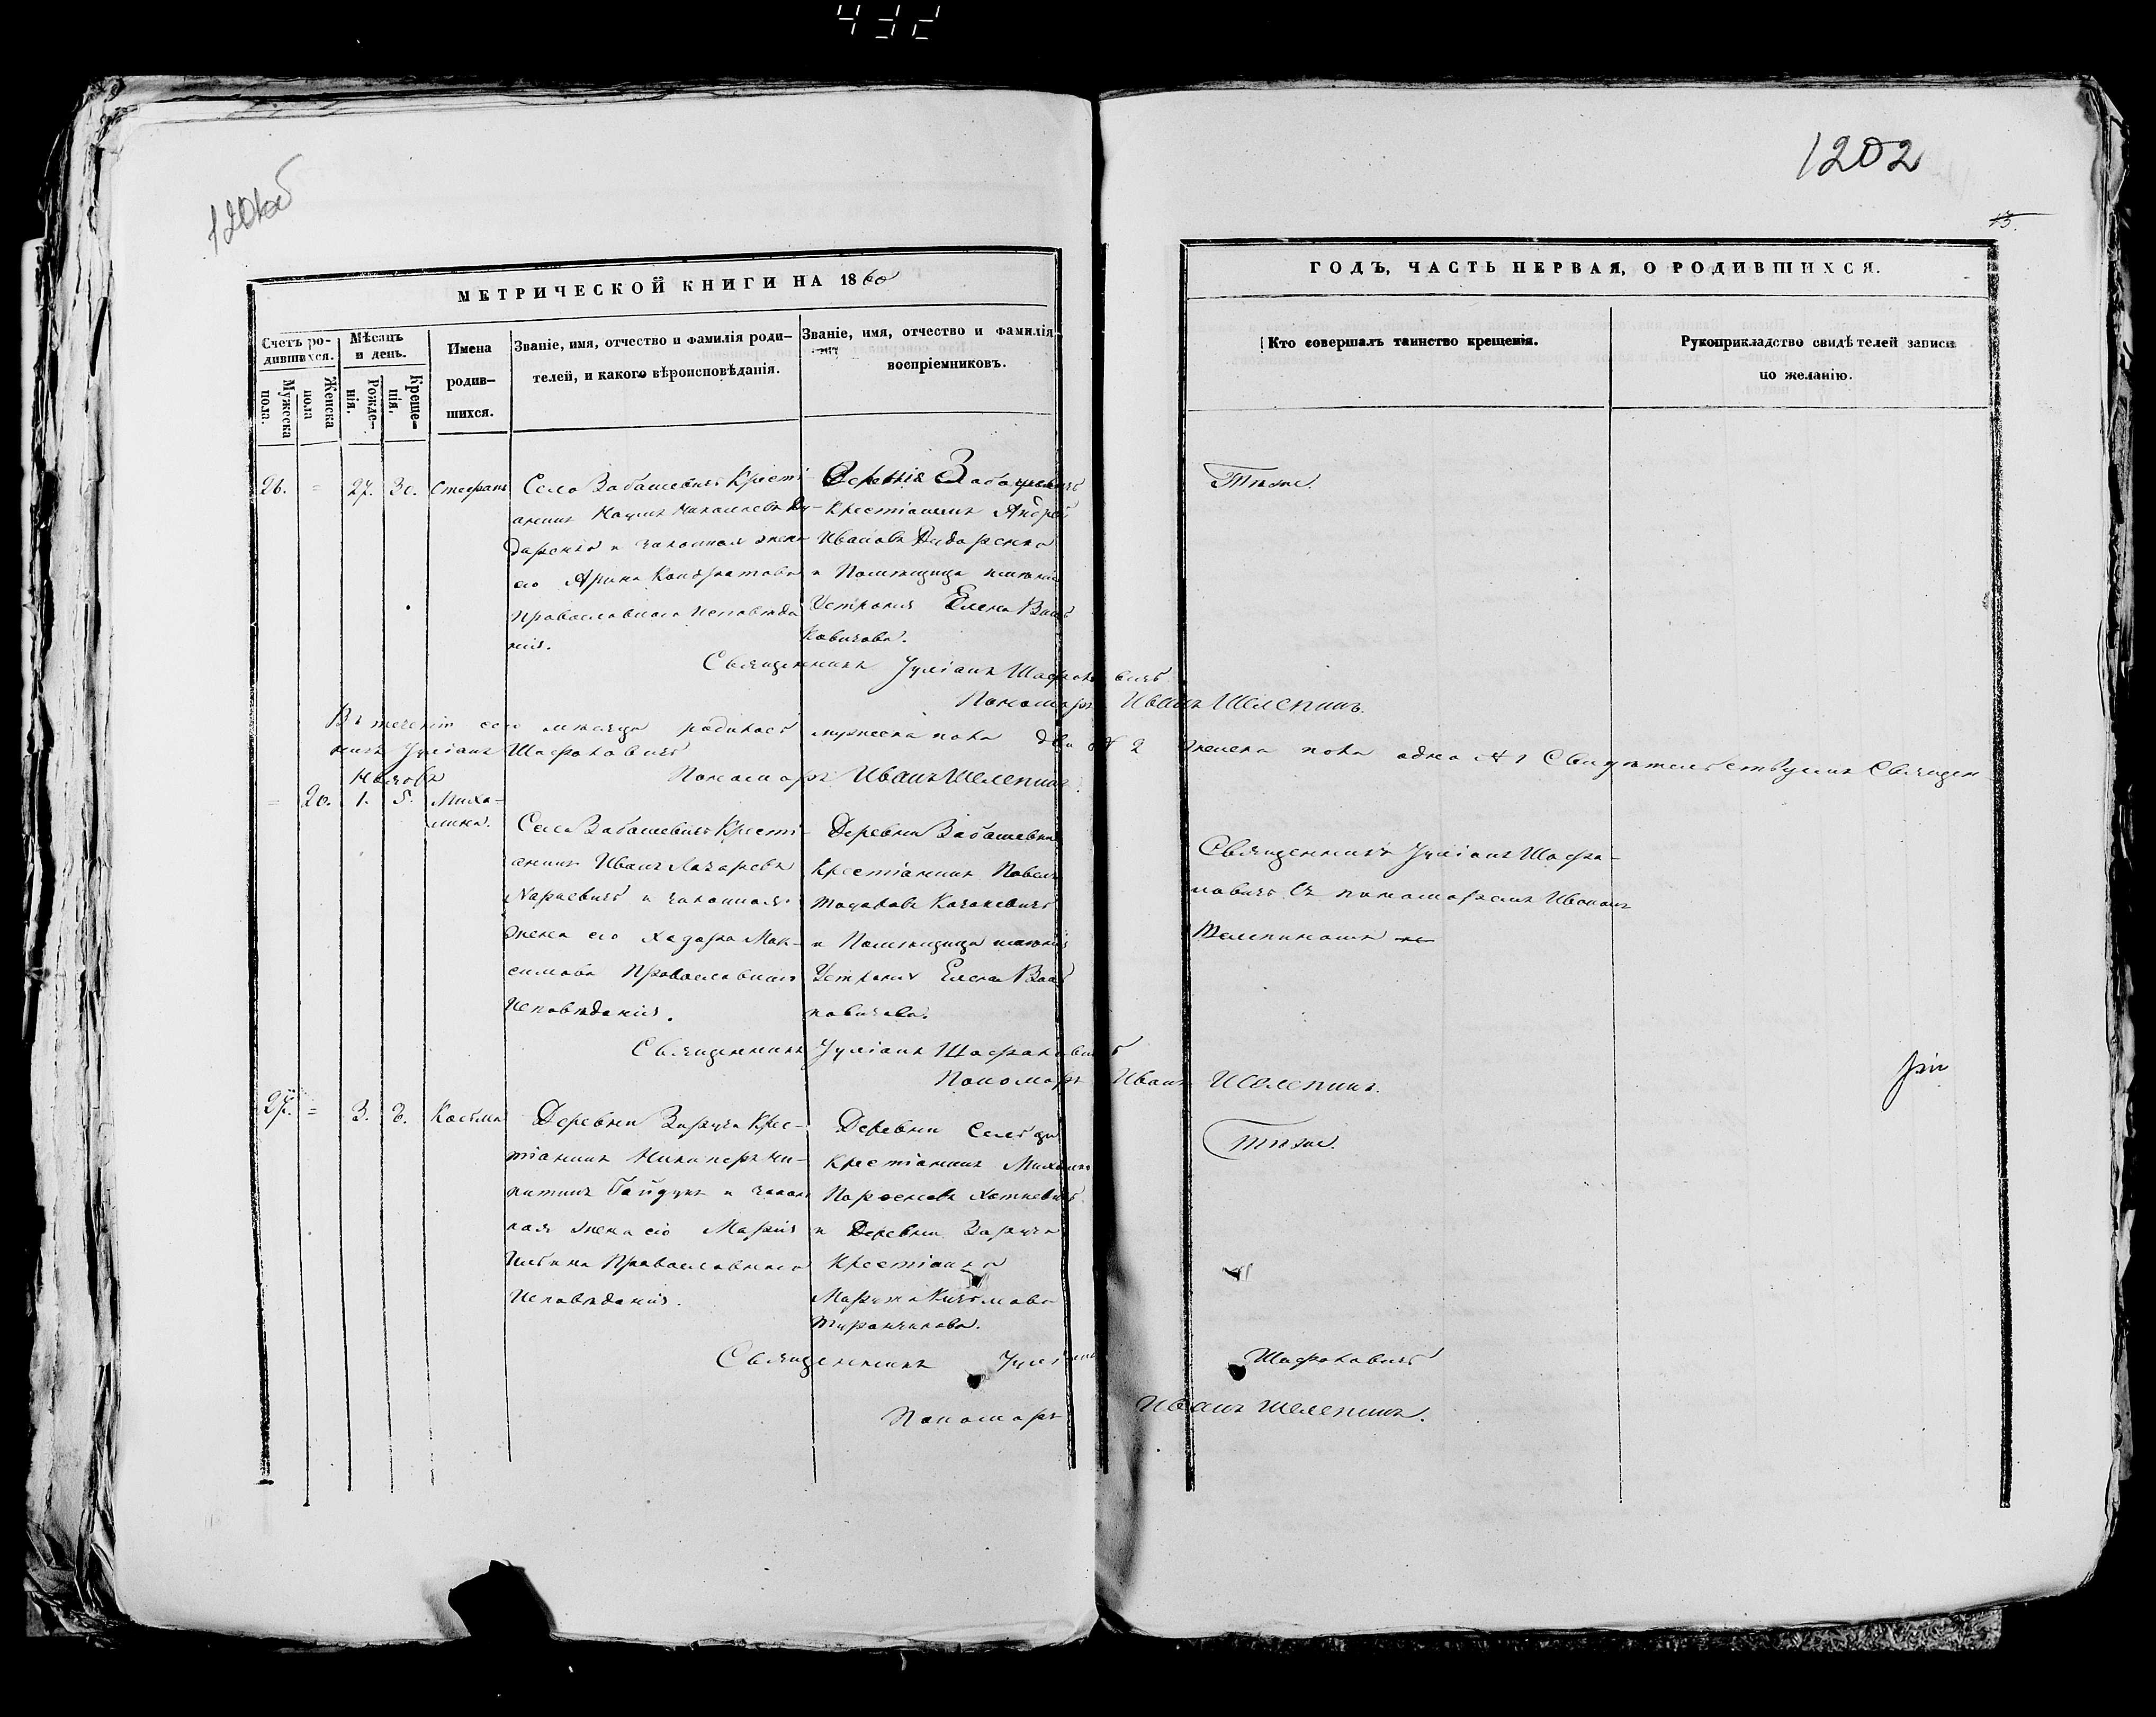 432
1202
1201об
13.
МЕТРИЧЕСКОЙ КНИГИ НА 1860
ГОДЪ, ЧАСТЬ ПЕРВАЯ, О РОДИВШИХСЯ.
Счетъ ро-
дившихся.
Мужеска
пола.
Женска
пола
Мѣсяцъ
и день.
Рожде-
нія.
Креще-
нія.
Имена
родив-
шихся.
Званіе, имя, отчество и фамилія роди-
телей, и какого вѣроисповѣданія.
Званіе, имя, отчество и фамилія
воспріемниковъ.
Кто совершалъ таинство крещенія.
Рукоприкладство свидѣтелей записи
по желанію.
26.
=
27.
30.
Стефанъ
Села Забашевичъ Крести-
анинъ Наумъ Михалевъ Ду-
даренка и законная жена
его Арина Кондратова
Православнаго Исповѣда
нія.
Деревни Забашевичъ
Крестіанинъ Андрей
Ивановъ Дударенка
и Помѣщица имѣнія
Устронія Елена
Тѣже.
Священникъ Іуліанъ Шафрановичъ
Пономарь Иванъ Шелепинъ.
Въ теченіи сего мѣсяца родилось мужеска пола два № 2 женска пола одна № 1 Свидѣтельствуемъ Священ-
никъ Іуліанъ Шафрановичъ
Пономарь Иванъ Шелепинъ.
Ноябрь
=
20.
1.
5.
Миха-
лина.
Села Забашевичъ Крести-
анинъ Иванъ Лазаревъ
и законная
жена его Ходора Мак-
симова Православнаго
Исповѣданія.
Деревни Забашевичъ
Крестіанинъ Павелъ
и Помѣщица имѣнія
Устронія Елена
Священникъ Іуліанъ Шафра-
новичъ Съ пономаремъ Иваномъ
Шелепиномъ
Священникъ Іуліанъ Шафрановичъ
Пономарь Иванъ Шелепинъ.
27.
=
3.
Косьма
Деревни Заручья Крес-
тіанинъ Никиперъ Ни-
китинъ Гайдукъ и закон
ная жена его Марія
Православнаго
Исповѣданія.
Деревни Селъца
Крестіанинъ Михаилъ
Парфеновъ Хоткевичъ
и Деревни Заручья
Крестіанка
Тѣже.
Священникъ Іуліанъ Шафрановичъ
Пономарь Иванъ Шелепинъ.